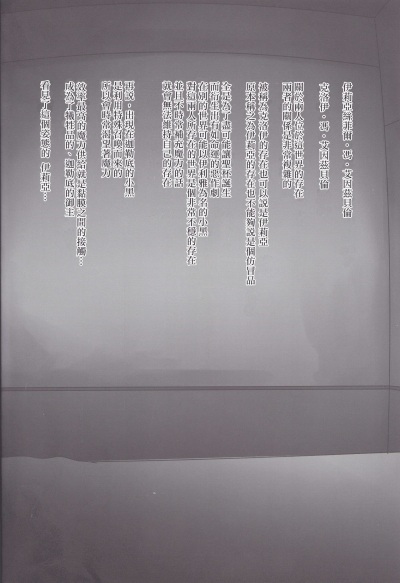 伊莉亞絲菲爾・馮・艾因茲貝倫
克洛伊・馮・艾因茲貝倫
關於兩人位於這世界的存在
兩者的關係是非常複雜的
被稱為克洛伊的存在也可以說是伊莉亞
原本稱之為伊莉亞的存在也不能夠說是個仿冒品
全是為了盡可能讓聖杯誕生
而衍生出有如命運的惡作劇
在別的世界可能以伊利雅為名的小黑
對這兩人所存在的世界是個非常不穩的存在
並且不時常補充魔力的話
就會無法維持自己的存在
再說，出現在迦勒底的小黑
是利用特殊召喚而來的
所以會時常渴望著魔力
效率最高的魔力供給就是黏膜之間的接觸…
成為了犧牲品的，迦勒底的御主
看見了這個姿態的 伊莉亞…